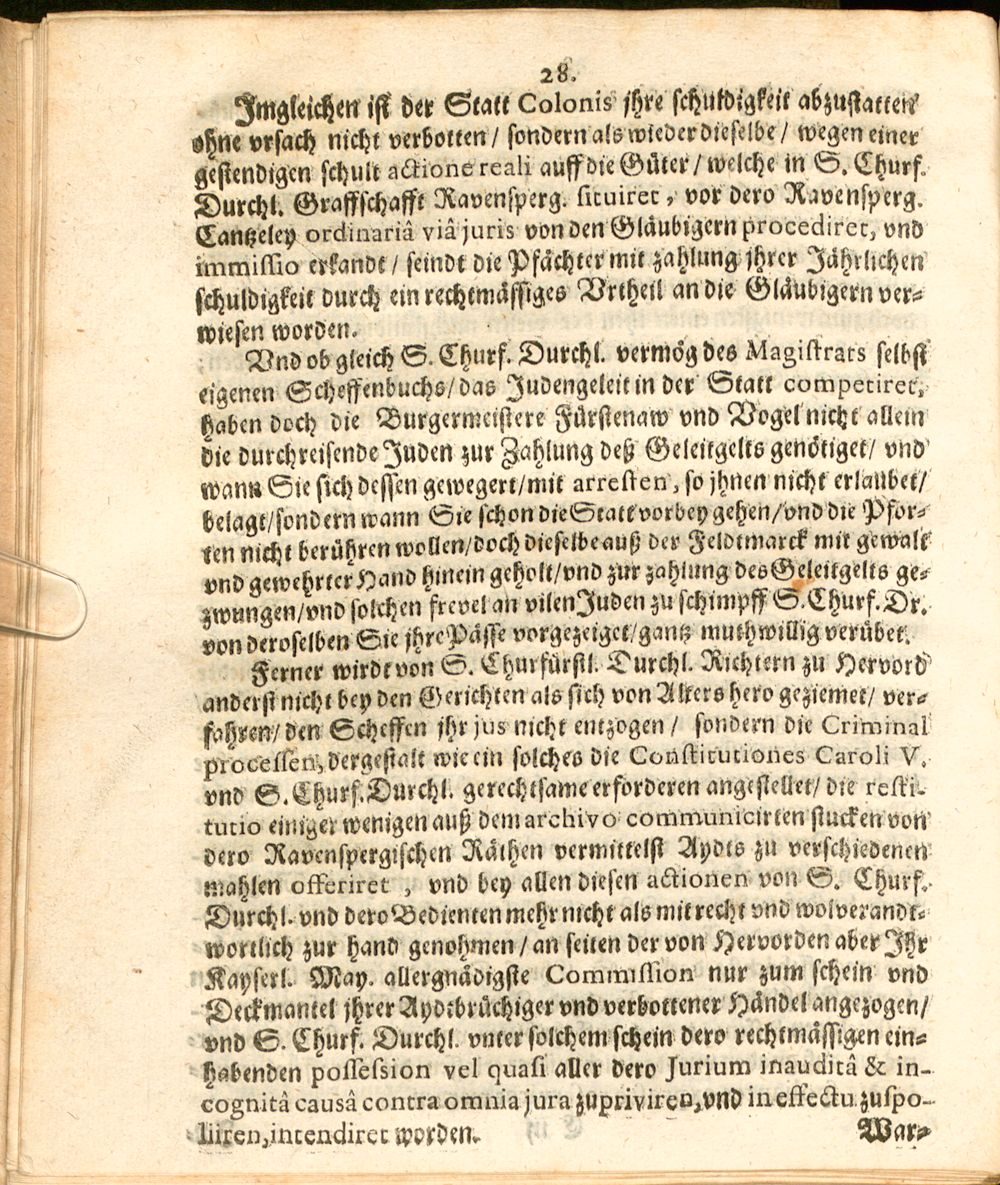 28.
Imgleichen ist der Statt Colonis jhre schuldigkeit abzustatten
ohne vrsach nicht verbotten / sondern als wieder dieselbe / wegen einer
gestendigen schult actione reali auff die Güter / welche in S. Churf.
Durchl. Graffschafft Ravensperg. situiret, vor dero Ravensperg.
Cantzeley ordinariâ viâ juris von den Gläubigern procediret, vnd
immissio erkandt / seindt die Pfächter mit zahlung jhrer Jährlichen
schuldigkeit durch ein rechtmässiges Vrtheil an die Gläubigern ver-
wiesen worden.
Vnd ob gleich S. Churf. Durchl. vermög des Magistrats selbst
eigenen Scheffenbuchs / das Judengeleit in der Statt competiret,
haben doch die Burgermeistere Fürstenaw vnd Vogel nicht allein
die durchreisende Juden zur Zahlung deß Geleitgelts genötiget / vnd
wann Sie sich dessen gewegert / mit arresten, so jhnen nicht erlaubet /
belagt / sondern wann Sie schon die Statt vorbey gehen / vnd die Pfor-
ten nicht berühren wollen / doch dieselbe auß der Feldtmarck mit gewalt
vnd gewehrter Hand hinein geholt / vnd zur zahlung des Geleitgelts ge-
zwungen / vnd solchen frevel an vilen Juden zu schimpff S. Churf. Dr.
von deroselben Sie jhre Pässe vorgezeiget / gantz muthwillig verübet.
Ferner wirdt von S. Churfürstl. Durchl. Richtern zu Hervord
anderst nicht bey den Gerichten als sich von Alters hero geziemet / ver-
fahren / den Scheffen jhr jus nicht entzogen / sondern die Criminal
processen, dergestalt wie ein solches die Constitutiones Caroli V.
vnd S. Churf. Durchl. gerechtsame erforderen angestellet / die resti-
tutio einiger wenigen auß dem archivo communicirten stucken von
dero Ravenspergischen Räthen vermittelst Aydts zu verschiedenen
mahlen offeriret, vnd bey allen diesen actionen von S. Churf.
Durchl. vnd dero Bedienten mehr nicht als mit recht vnd wolverandt-
wortlich zur hand genohmen / an seiten der von Hervorden aber Ihr
Kayserl. May. allergnädigste Commission nur zum schein vnd
Deckmantel jhrer Aydtbrüchiger vnd verbottener Händel angezogen /
vnd S. Churf. Durchl. vnter solchem schein dero rechtmässigen ein-
habenden possession vel quasi aller dero Jurium inauditâ & in-
cognitâ causâ contra omnia jura zu priviren, vnd in effectu zu spo-
liiren, intendiret worden.
War-